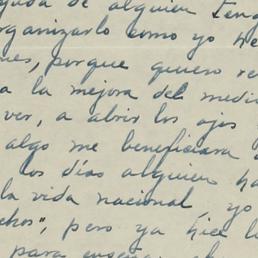 ayuda de alguien teng
organizarlo como yo he
nes, porque quiero re
a la mejora del medi
ver, a abrir los ojos
algo me beneficiara
los días alguien ha
la vida nacional, yo
chos", pero ya hice l
para enseñar al